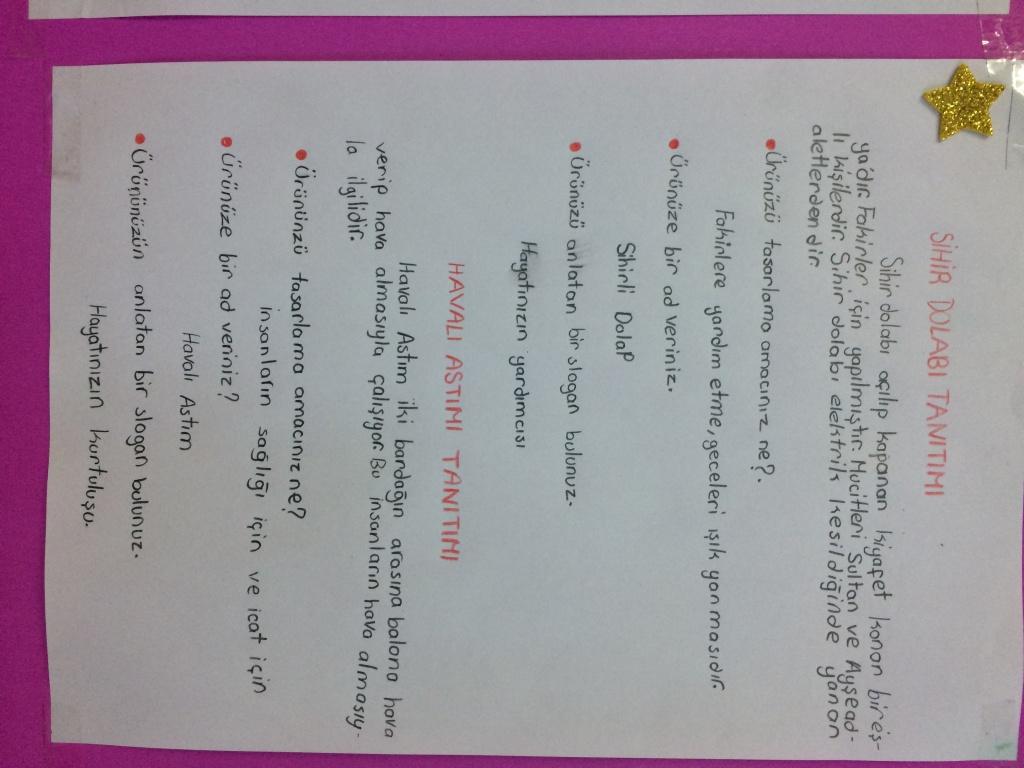 SİHİR DOLABI TANITIMI
Sihir dolabı açılıp kapanan kiyafet konan bir eş-
ya'dır. Fakirler için yapılmıştır. Mucitleri Sultan ve Ayşead-
lı kişilerdir. Sihir dolabı elektrik kesildiğinde yanan
aletlerdendir.
• Ürünüzü tasarlama amacınız ne?.
Fakirlere yardım etme, geceleri ışık yanmasıdır.
• Ürünüze bir ad veriniz.
Sihirli Dolap
• Ürünüzü anlatan bir slogan bulunuz.
Hayatınızın yardımcısı
HAVALI ASTIMI TANITIMI
Havalı Astım iki bardağın arasına balona hava
verip hava almasıyla çalışıyor. Bu insanların hava almasıy-
la ilgilidir.
• Ürününzü tasarlama amacınız ne?
İnsanların sağlığı için ve icat için
• Ürünüze bir ad veriniz?
Havalı Astım
• Ürününüzün anlatan bir slogan bulunuz.
Hayatınızın kurtuluşu.